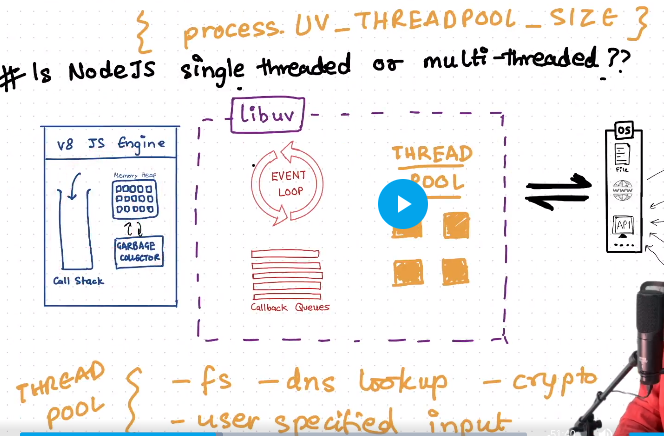 { process. UV_THREADPOOL_SIZE }
# Is NodeJS single threaded or multi-threaded ??
libuv
V8 JS Engine
Memory Heap
GARBAGE
COLLECTOR
Call Stack
EVENT
LOOP
Callback Queues
THREAD
POOL
OS
File
WWW
API
THREAD
POOL
{ - fs - dns lookup - crypto
- user specified input